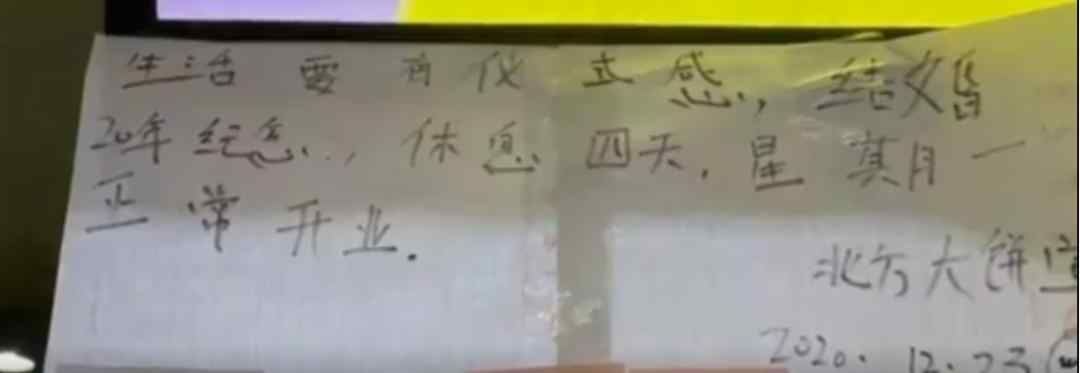 生活要有仪式感,结婚
20年纪念.,休息四天.星期一
正常开业.
北方大饼
2020.12.23